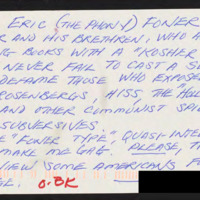 ERIC (THE PHONY) FONER
R AND HIS BRETHREN, WHO A
G BOOKS WITH A "KOSHER
NEVER FAIL TO CAST A S
DEFAME THOSE WHO EXPOSE
ROSENBERGS, HISS, THE HOLL
AND OTHER COMMUNIST SPI
SUBVERSIVES.
"FONER TYPE," QUASI-INTEL
MAKE ME GAG. PLEASE, T
VIEW SOME AMERICANS F
GE. O-BK